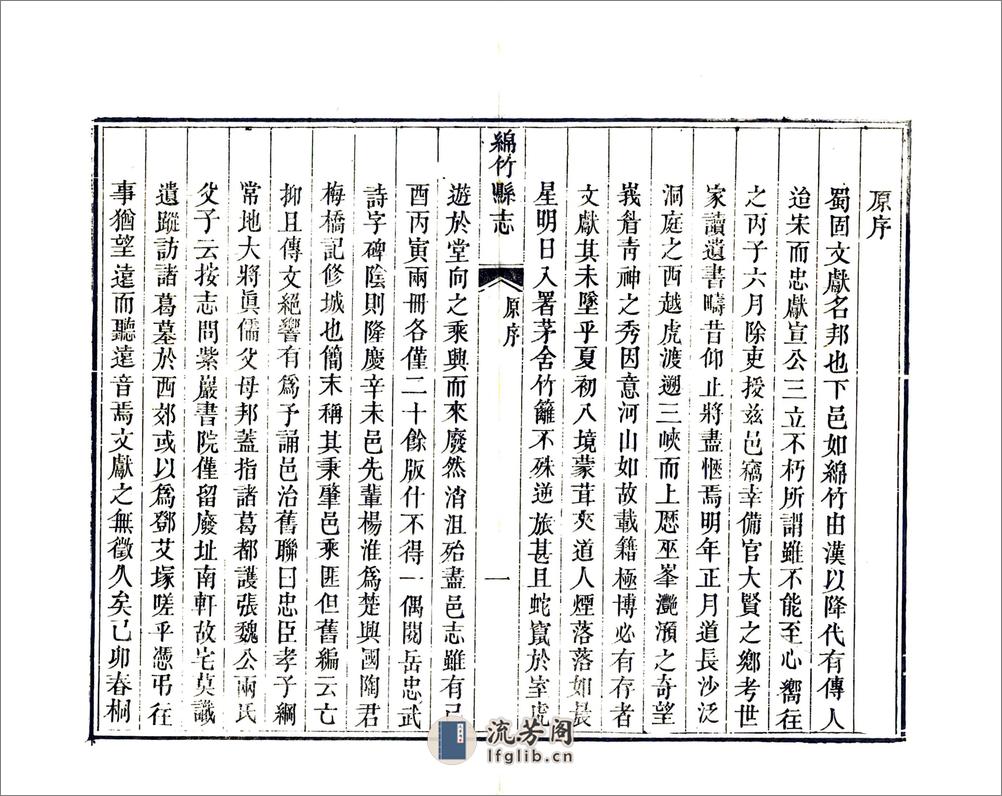 原序
蜀固文獻名邦也下邑如綿竹由漢以降代有傳人
迨宋而忠獻宣公三立不朽所謂雖不能至心嚮往
之丙子六月除吏授兹邑竊幸備官大賢之鄉考世
家讀遺書疇昔仰止將盡愜焉明年正月道長沙泛
洞庭之西越虎渡遡三峽而上歷巫峯灩澦之奇望
峩眉青神之秀因意河山如故載籍極博必有存者
文獻其未墜乎夏初入境蒙茸夾道人煙落落如晨
星明日入署茅舍竹籬不殊逆旅甚且蛇竄於室虎
綿竹縣志
原序
一
遊於堂向之乘興而來廢然消沮殆盡邑志雖有己
酉丙寅兩冊各僅二十餘版什不得一偶閱岳忠武
詩字碑陰則隆慶辛未邑先輩楊淮爲楚興國陶君
梅橋記修城也簡末稱其秉肇邑乘匪但舊編云亡
抑且傳文絕響有爲予誦邑治舊聯曰忠臣孝子綱
常地大將眞儒父母邦蓋指諸葛都護張魏公兩氏
父子云按志問紫巖書院僅留廢址南軒故宅莫識
遺蹤訪諸葛墓於西郊或以爲鄧艾塚嗟乎憑弔往
事猶望遠而聽遠音焉文獻之無徵久矣己卯春桐
流芳阁
lfglib.cn